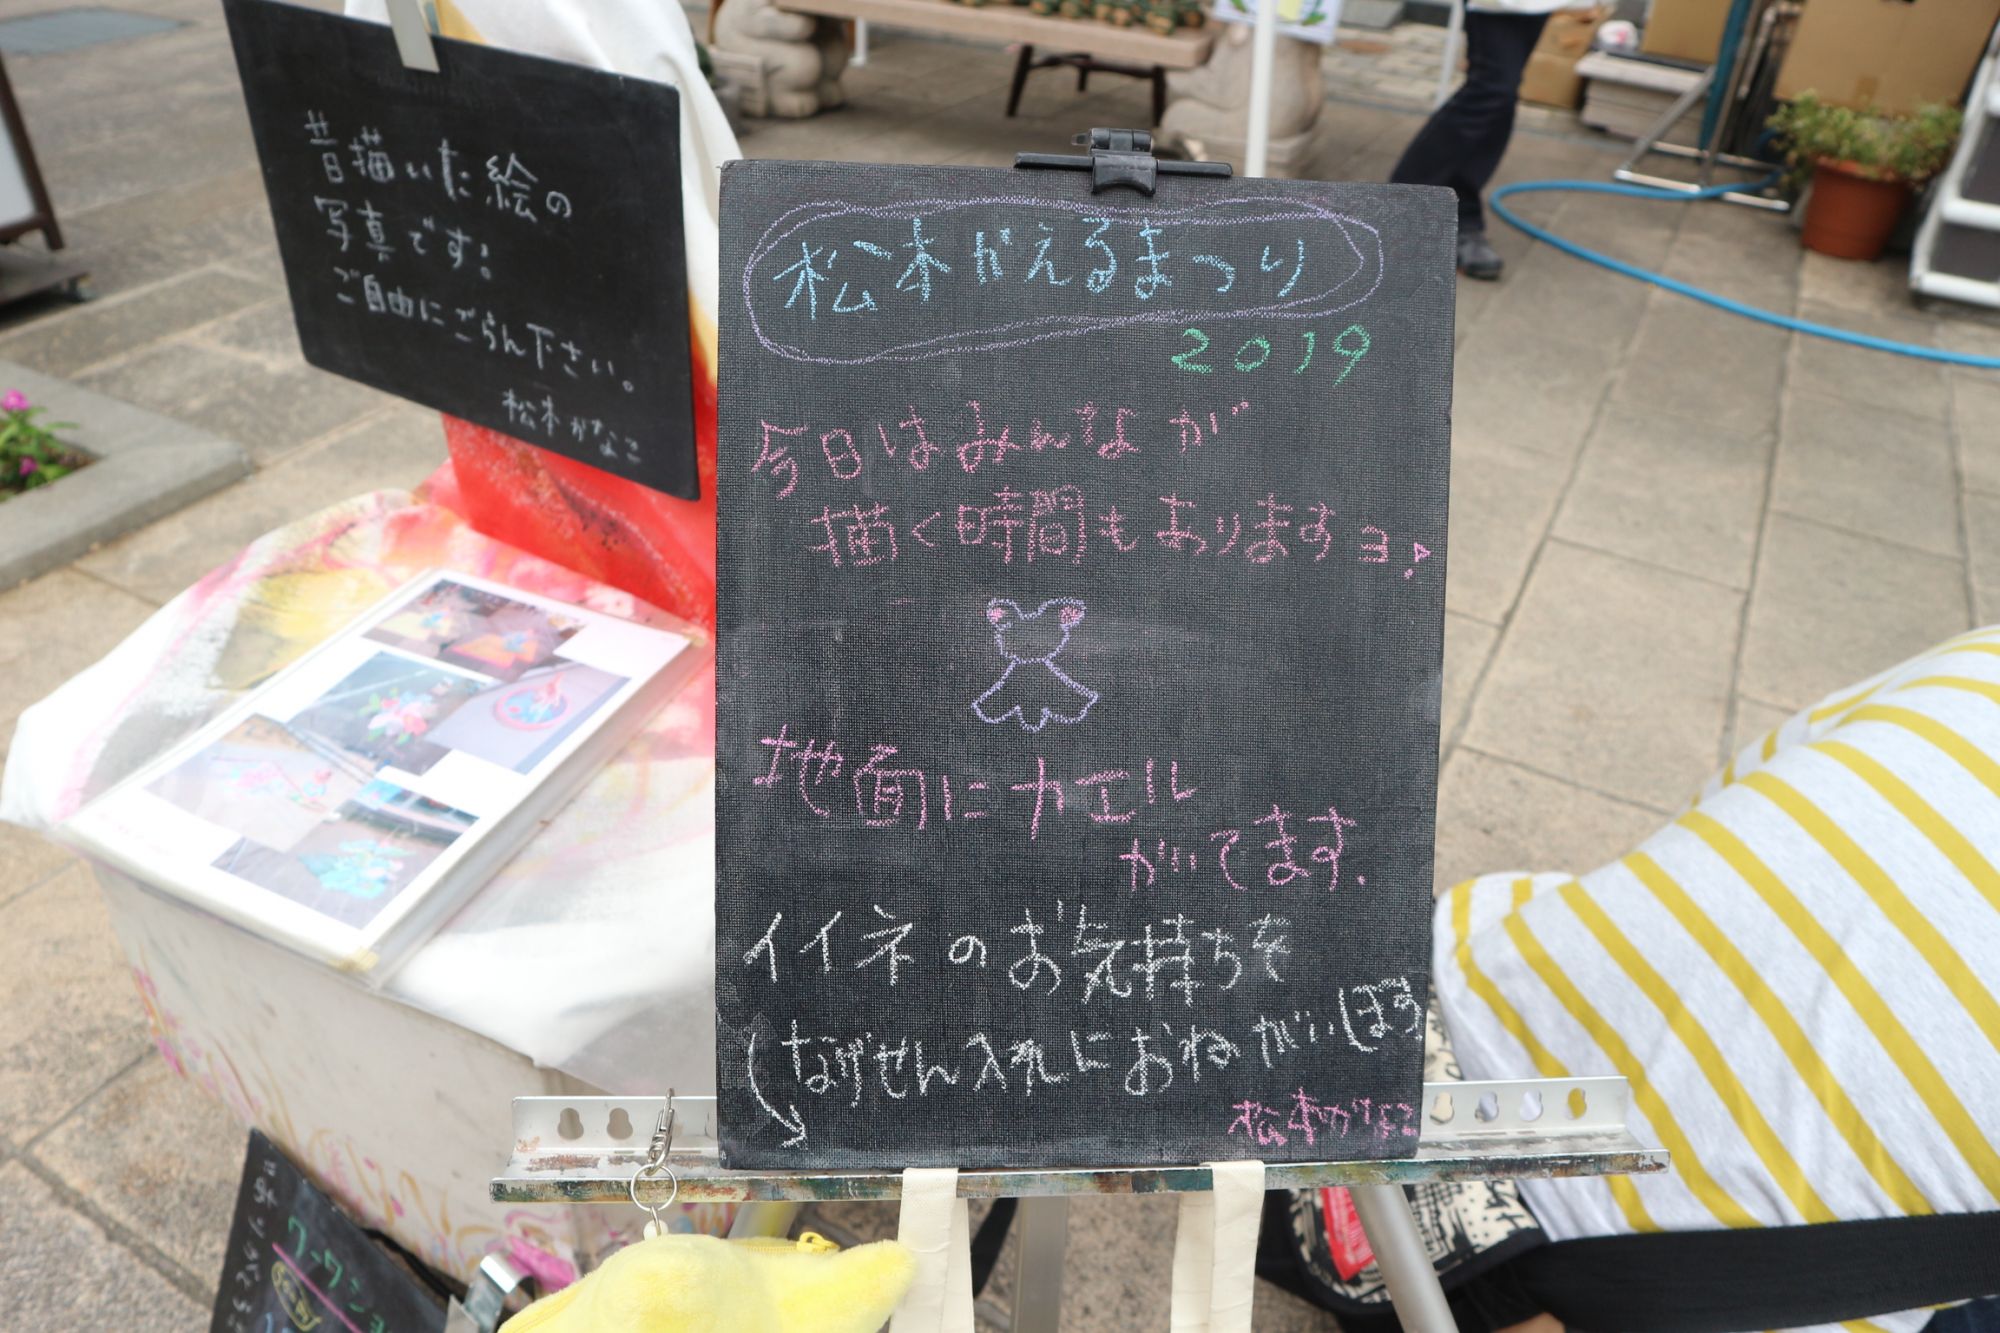 昔描いた絵の
写真です!
ご自由にごらん下さい。
松本かなこ
松本かえるまつり
2019
今日はみんなが
描く時間もありますョ♪
地面にカエル
がいてます.
イイネのお気持ちを
なげせん入れにおねがいします
松本かなこ
ワークショ